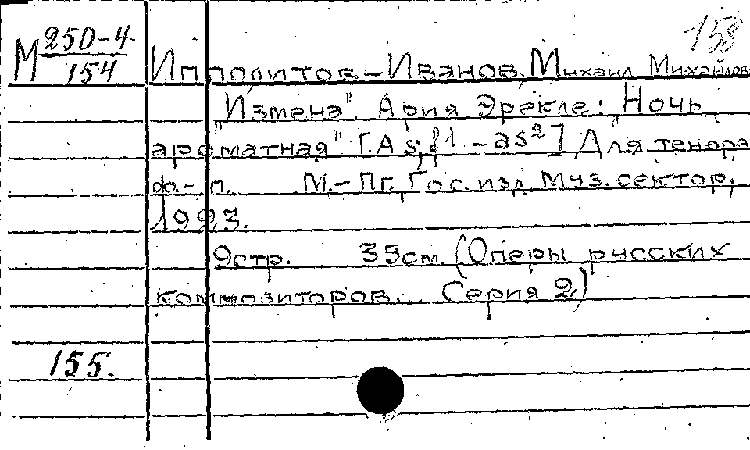 158
М 250-4
154
Ипполитов-Иванов, Михаил Михайлов
"Измена". Ария Эрекле: "Ночь
ароматная" [As; f1 - as2] Для тенора
ф.-п. М.-Пг, Гос. изд. Муз. сектор,
1923.
9стр. 35см. (Оперы русских
композиторов... Серия 2)
155.